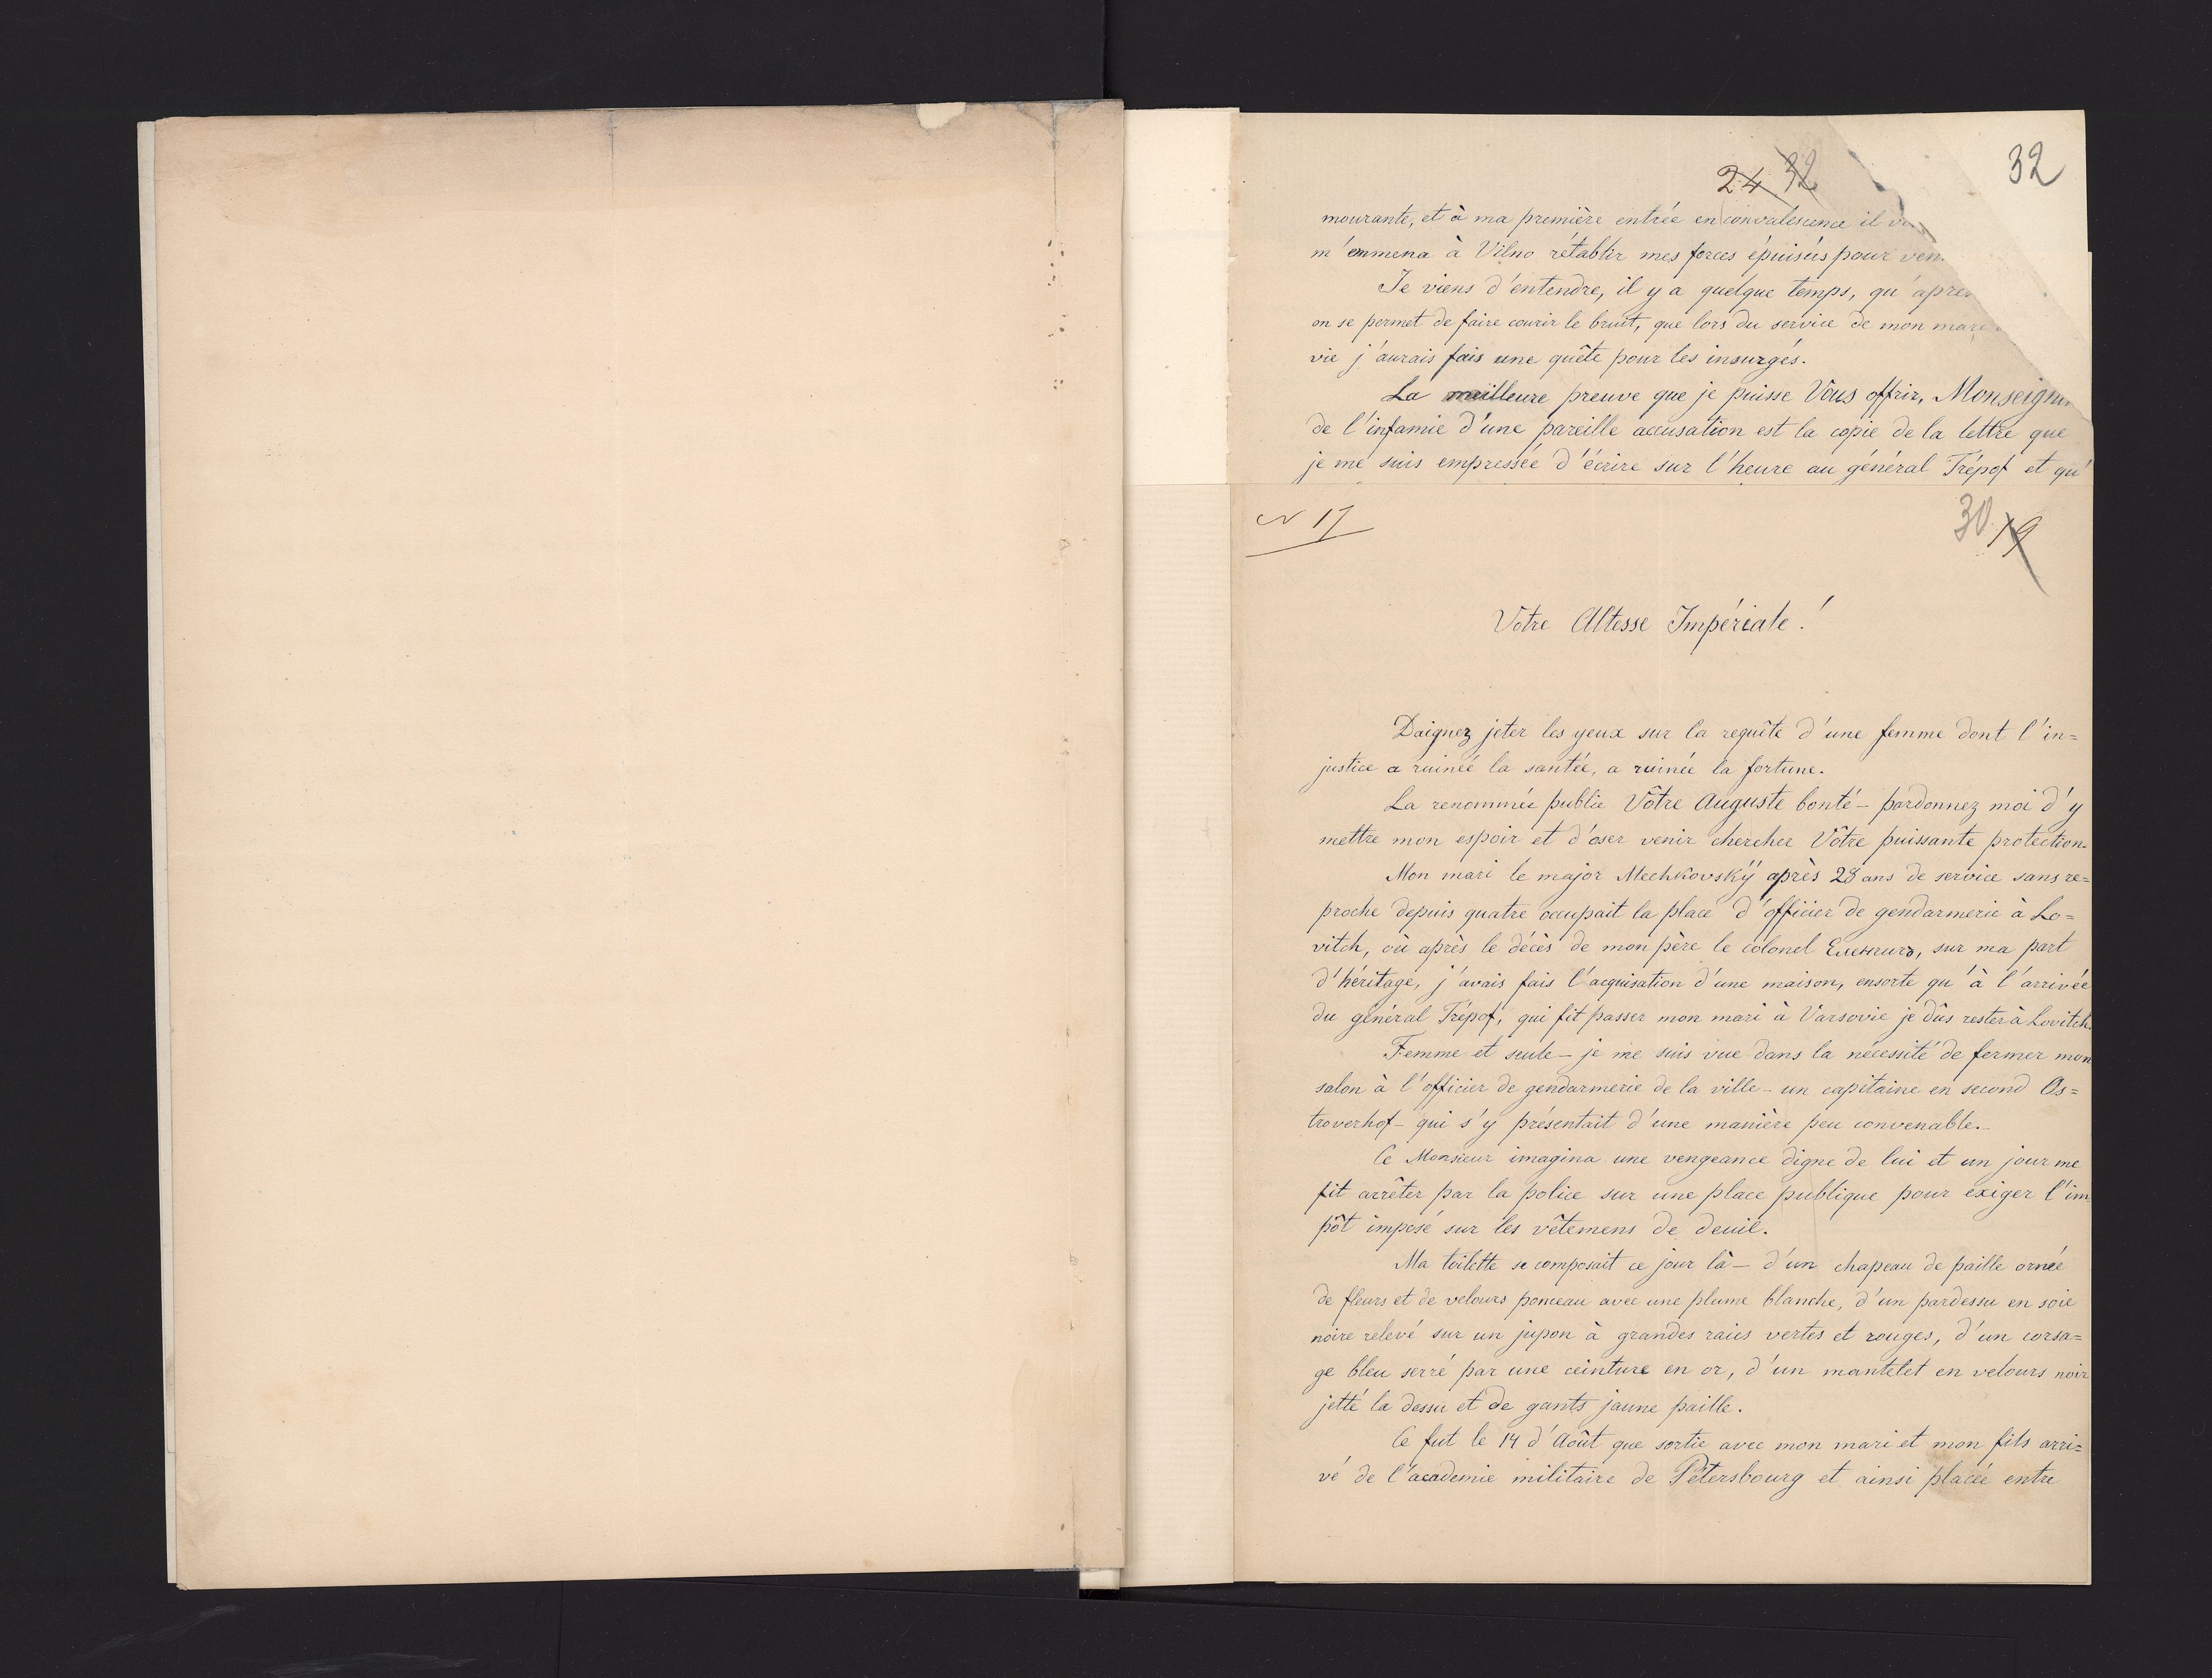 32
24 32
mourante, et à ma première entrée en convalescence il
m'emmena à Vilno rétablir mes forces épuisées pour
Je viens d'entendre, il y a quelque temps, qu'après
on se permet de faire courir le bruit, que lors du service de mon mari
vie j'aurais fais une quête pour les insurgés.
La meilleure preuve que je puisse Vous offrir, Monseigneur
de l'infamie d'une pareille accusation est la copie de la lettre que
je me suis empressée d'écrire sur l'heure au général Trépof et qu'
N 17
30 19
Votre Altesse Impériale!
Daignez jeter les yeux sur la requête d'une femme dont l'in=
justice a ruineé la santée, a ruinée la fortune.
La renommée publie Vôtre Auguste bonté – pardonnez moi d'y
mettre mon espoir et d'oser venir chercher Vôtre puissante protection.
Mon mari le major Mechkovskÿ après 28 ans de service sans re=
proche depuis quatre occupait la place d'officier de gendarmerie à Lo=
vitch, où après le décès de mon père le colonel sur ma part
d'héritage, j'avais fais l'acquisation d'une maison, ensorte qu'à l'arrivée
du général Trépof, qui fit passer mon mari à Varsovie je dûs rester à Lovitch.
Femme et seule – je me suis vue dans la nécessité de fermer mon
salon à l'officier de gendarmerie de la ville – un capitaine en second Os=
troverhof – qui s'y présentait d'une manière peu convenable. –
Ce Monsieur imagina une vengeance digne de lui et un jour me
fit arrêter par la police sur une place publique pour exiger l'im
pôt imposé sur les vêtemens de deuil.
Ma toilette se composait ce jour là – d'un chapeau de paille ornée
de fleurs et de velours ponceau avec une plume blanche, d'un pardessu en soie
noire relevé sur un jupon à grandes raies vertes et rouges, d'un corsa=
ge bleu serré par une ceinture en or, d'un mantelet en velours noir
jetté la dessu et de gants jaune paille.
Ce fut le 14 d'Août que sortie avec mon mari et mon fils arri=
vé de l'academie militaire de Pétersbourg et ainsi placée entre